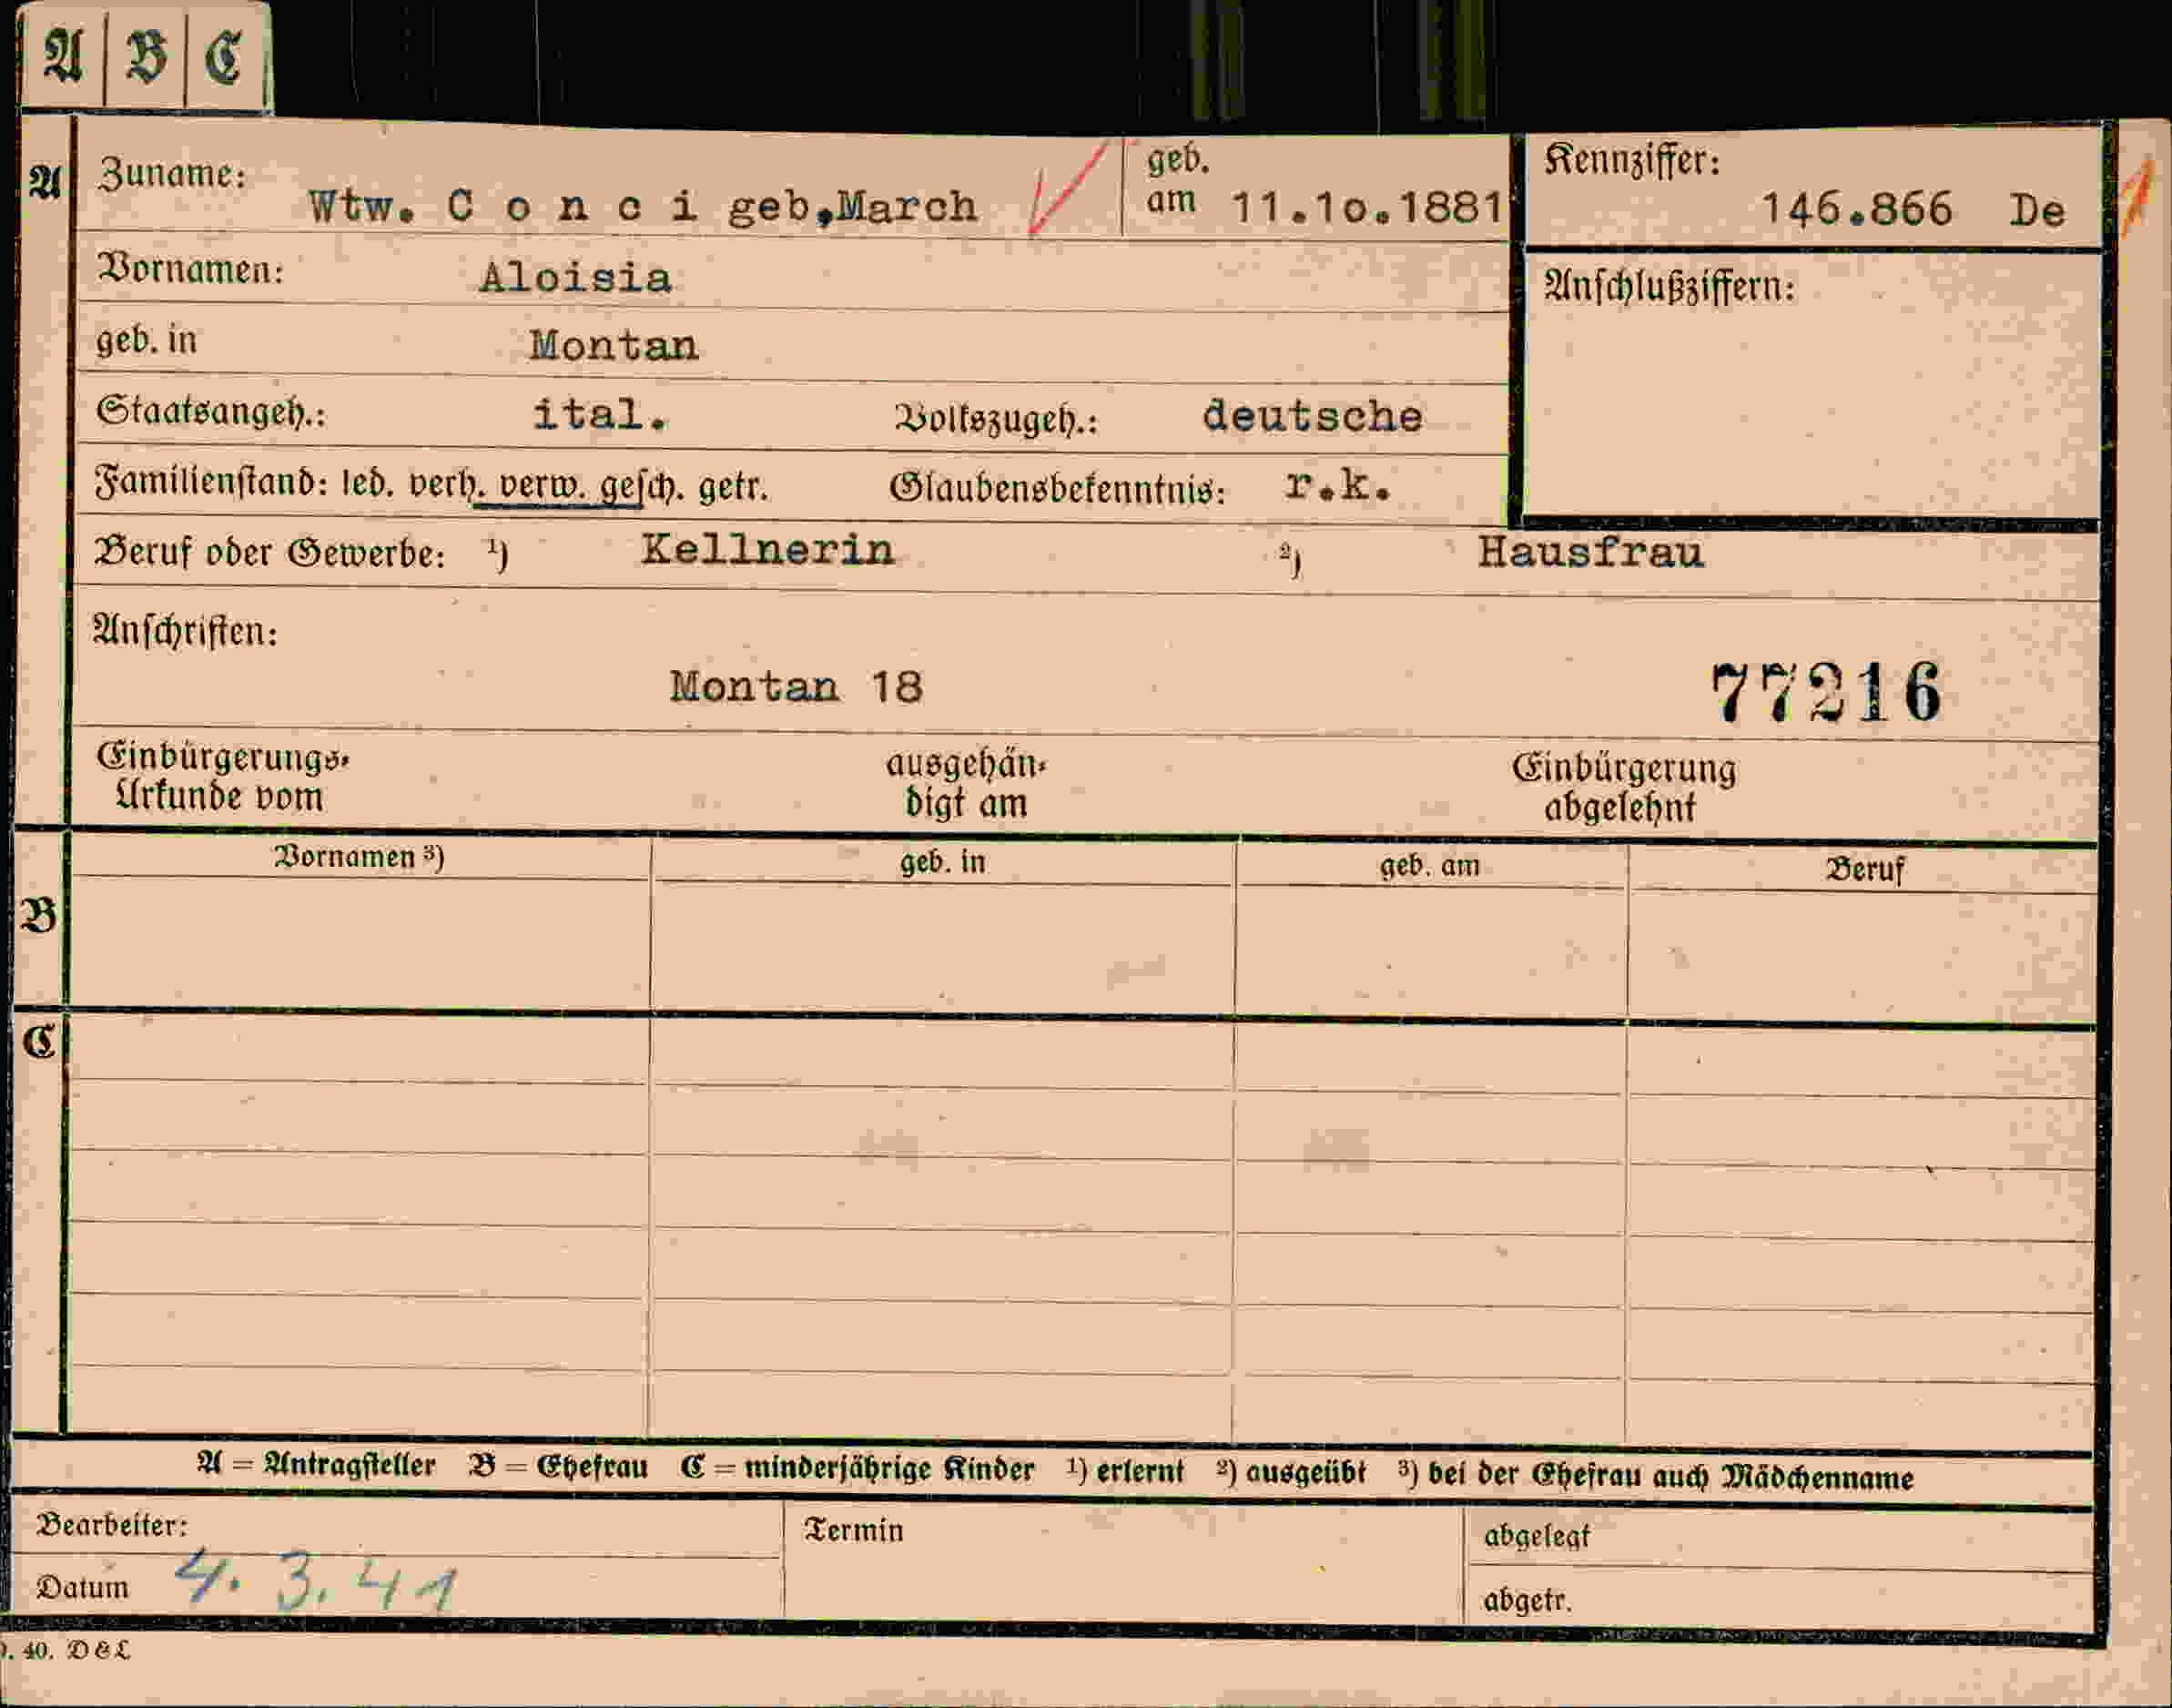 A B C
A Zuname: Wtw. C o n c i geb,March geb. am 11.10.1881 Kennziffer: 146.866 De 1
Vornamen: Aloisia Anschlußziffern:
geb. in Montan
Staatsangeh.: ital. Volkszugeh.: deutsche
Familienstand: led. verh. verw. gesch. getr. Glaubensbekenntnis: r.k.
Beruf oder Gewerbe: 1) Kellnerin 2) Hausfrau
Anschriften:
Montan 18 77216
Einbürgerungs- ausgehän- Einbürgerung
Urkunde vom digt am abgelehnt
Vornamen 3) geb. in geb. am Beruf
B
C
A = Antragsteller B = Ehefrau C = minderjährige Kinder 1) erlernt 2) ausgeübt 3) bei der Ehefrau auch Mädchenname
Bearbeiter: Termin abgelegt
Datum 4. 3. 41 abgetr.
. 40. D & L